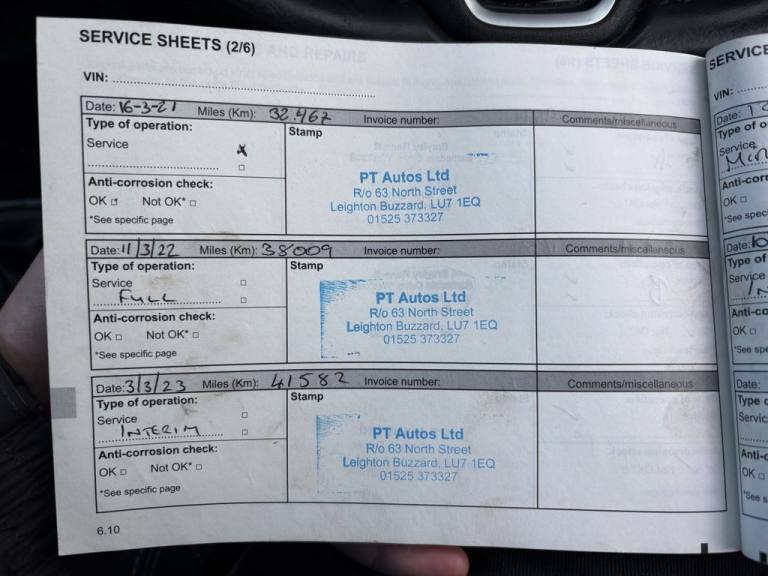 SERVICE SHEETS (2/6)
VIN:
Date: 16-3-21 Miles (Km): 32.467 Invoice number: Comments/miscellaneous
Type of operation:
Service
Stamp
PT Autos Ltd
R/o 63 North Street
Leighton Buzzard, LU7 1EQ
01525 373327
Anti-corrosion check:
OK Not OK*
*See specific page
Date: 11/3/22 Miles (Km): 38009 Invoice number: Comments/miscellaneous
Type of operation:
Service
FULL
Stamp
PT Autos Ltd
R/o 63 North Street
Leighton Buzzard, LU7 1EQ
01525 373327
Anti-corrosion check:
OK Not OK*
*See specific page
Date: 3/3/23 Miles (Km): 41582 Invoice number: Comments/miscellaneous
Type of operation:
Service
INTERIM
Stamp
PT Autos Ltd
R/o 63 North Street
Leighton Buzzard, LU7 1EQ
01525 373327
Anti-corrosion check:
OK Not OK*
*See specific page
6.10
SERVICE
VIN:
Date:
Type of
Service
Anti-corr
OK
*See spec
Date:
Type of
Service
Anti-co
OK
*See spe
Date:
Type
Servic
Anti-c
OK
*See s